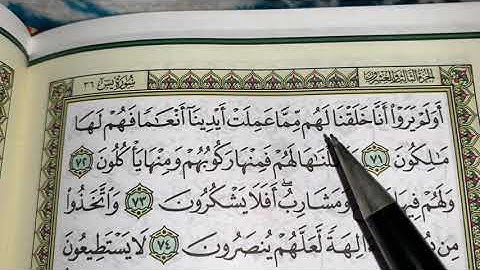 سُورَةُ يسٓ ٣٦ الجُزْءُ الثَّالِثُ وَالعِشْرُونَ
أَوَلَمْ يَرَوْا۟ أَنَّا خَلَقْنَا لَهُم مِّمَّا عَمِلَتْ أَيْدِينَآ أَنْعَٰمًا فَهُمْ لَهَا
مَٰلِكُونَ ٧١ لَهُمْ فَمِنْهَا رَكُوبُهُمْ وَمِنْهَا يَأْكُلُونَ ٧٢
وَلَهُمْ فِيهَا وَمَشَارِبُ ۖ أَفَلَا يَشْكُرُونَ ٧٣ وَٱتَّخَذُوا۟
مِن ءَالِهَةً لَّعَلَّهُمْ يُنصَرُونَ ٧٤ لَا يَسْتَطِيعُونَ